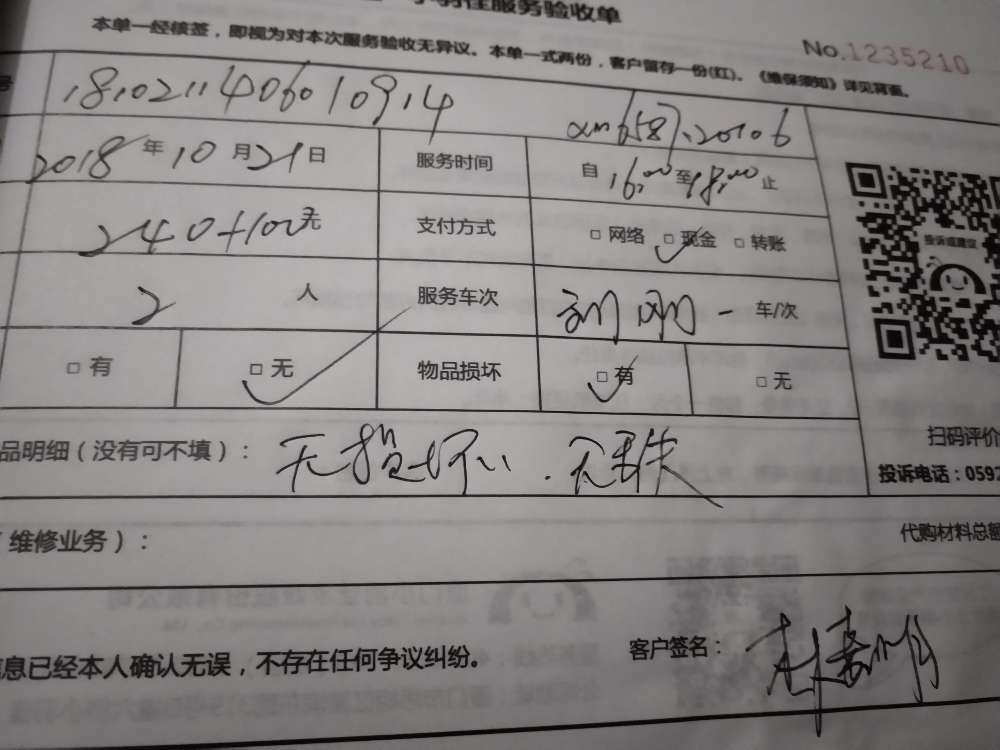 服务验收单
本单一经核签，即视为对本次服务验收无异议。本单一式两份，客户留存一份(红)。《维保须知》详见背面。
No.1235210
号 1810211406010914
2018年10月21日 服务时间 自16:00至18:00止
240+100元 支付方式 □网络 □现金 □转账
2人 服务车次 一车/次
□有 □无 物品损坏 □有 □无
投诉或建议
品明细（没有可不填）： 无损坏、
扫码评价
投诉电话：0592
（维修业务）： 代购材料总额
信息已经本人确认无误，不存在任何争议纠纷。 客户签名：